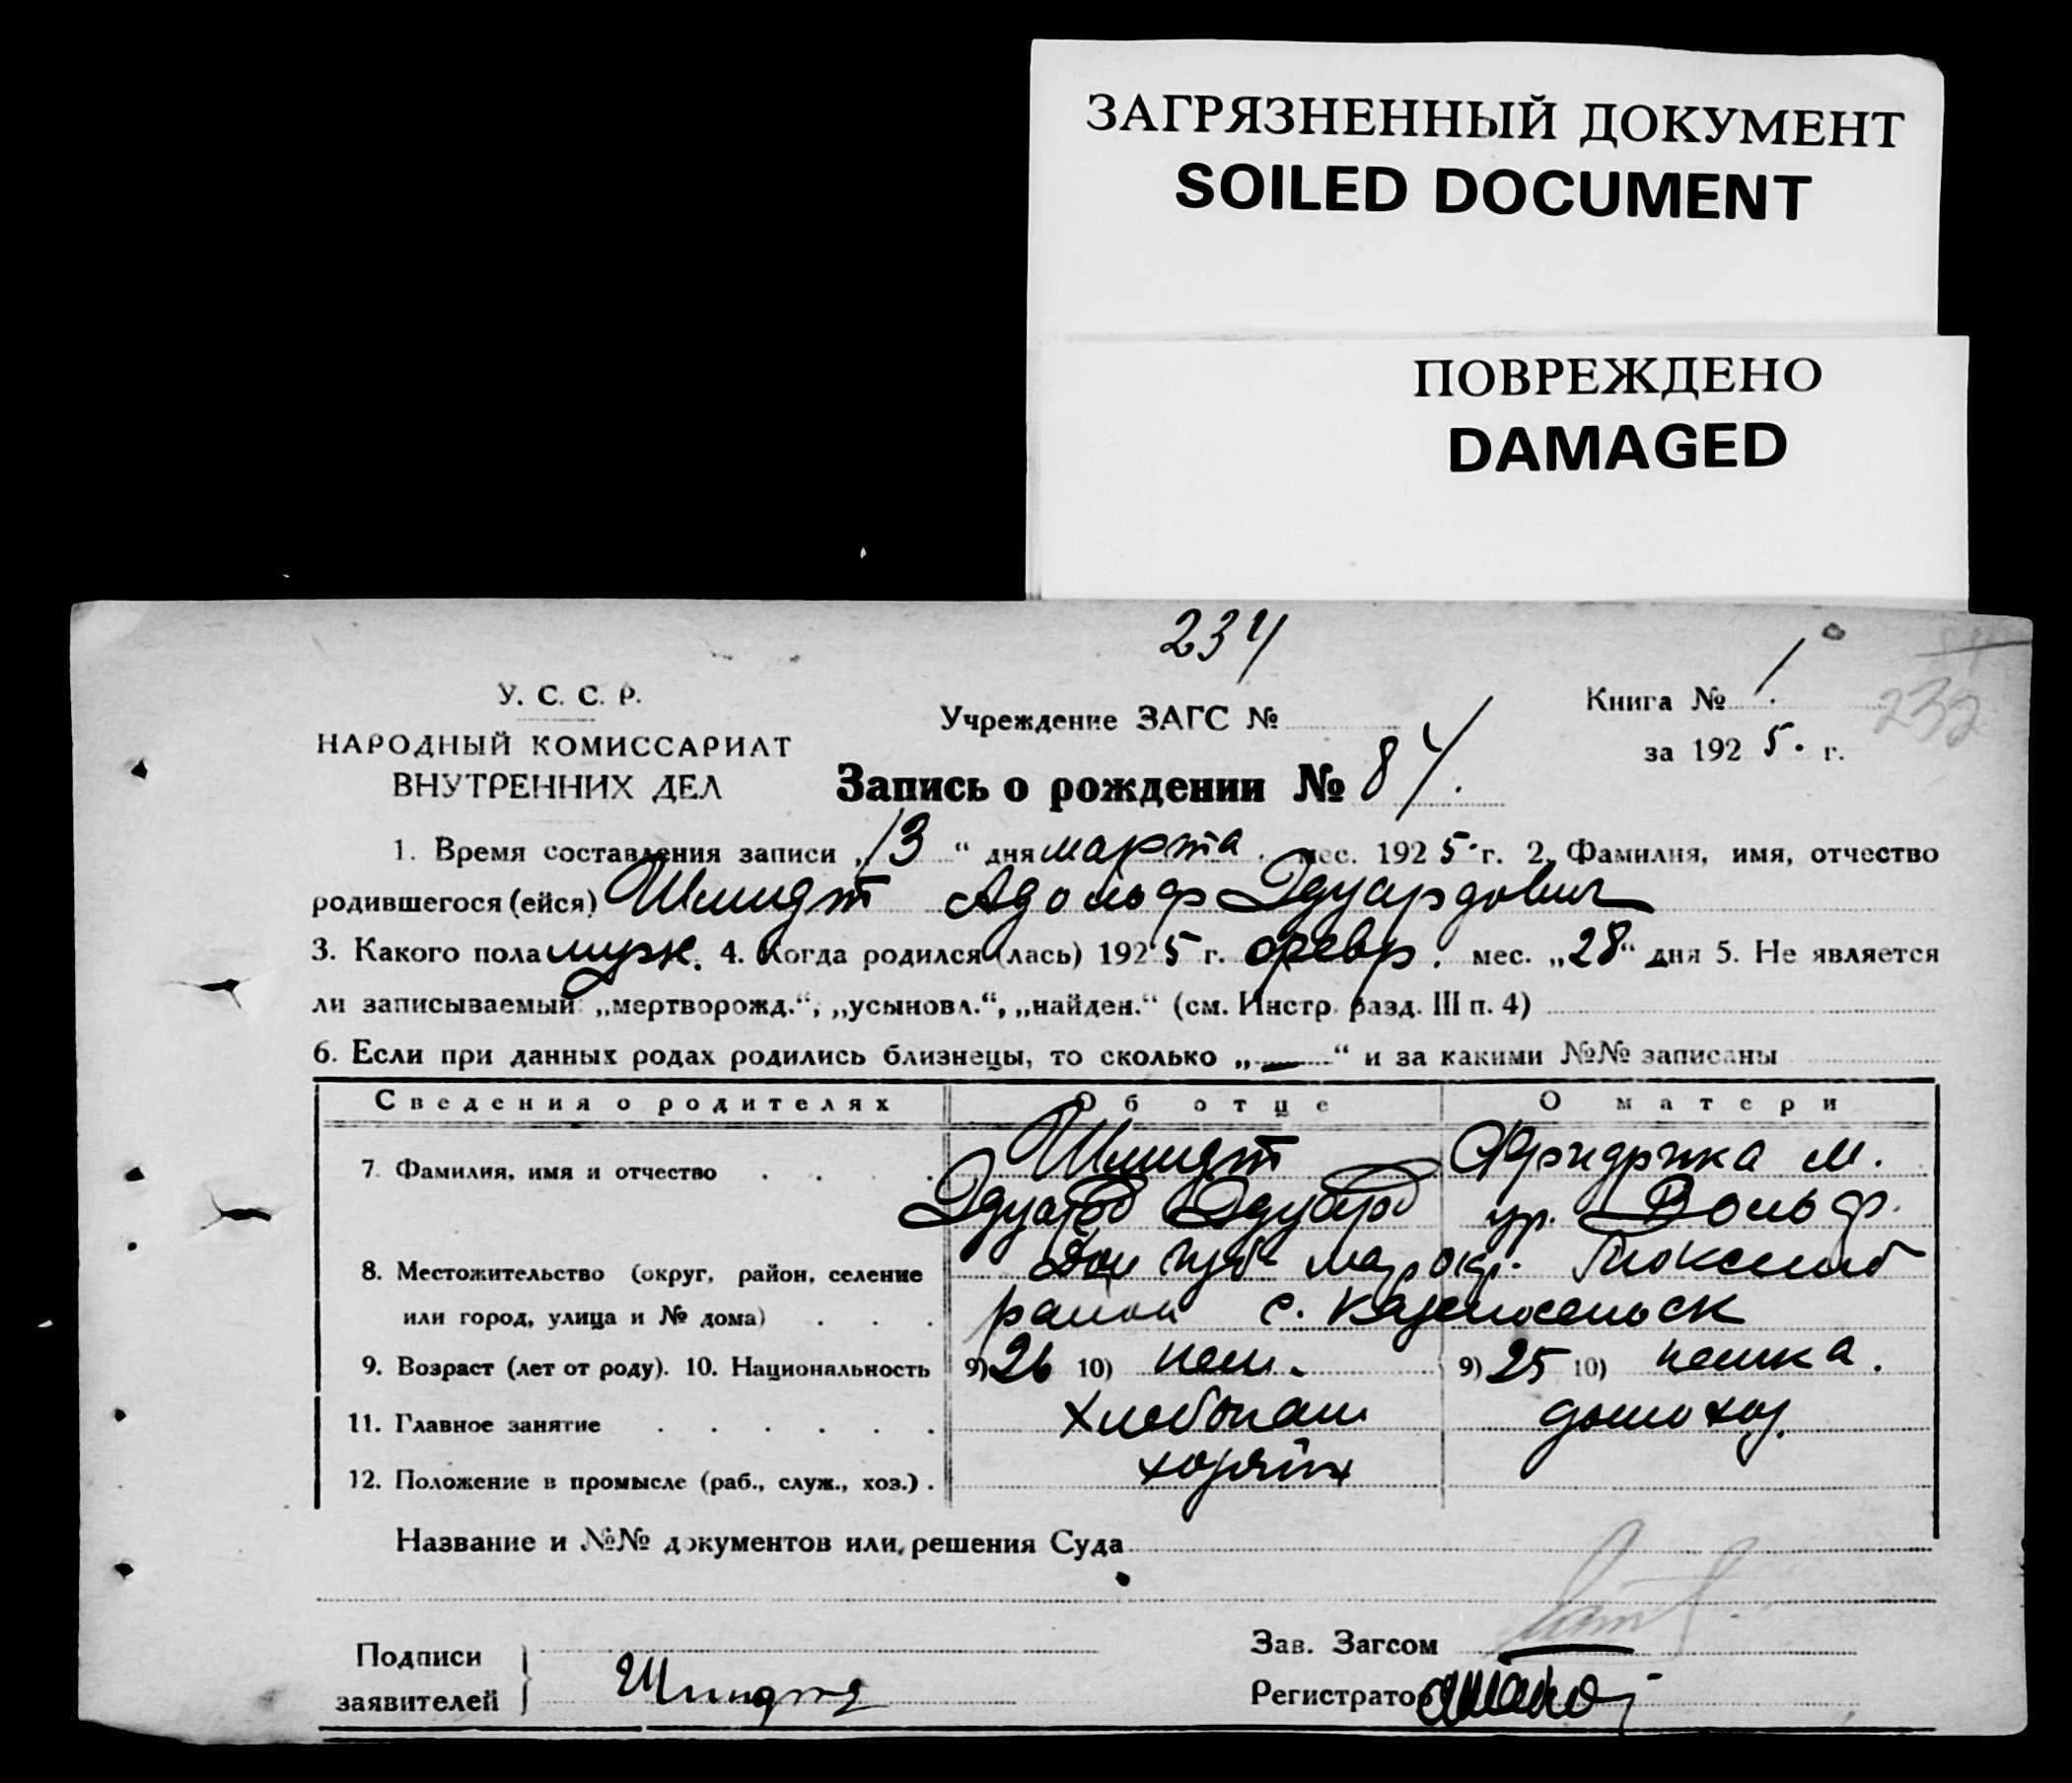 ЗАГРЯЗНЕННЫЙ ДОКУМЕНТ
SOILED DOCUMENT
ПОВРЕЖДЕНО
DAMAGED
234
У. С. С. Р.
НАРОДНЫЙ КОМИССАРИАТ
ВНУТРЕННИХ ДЕЛ
Учреждение ЗАГС №
Книга № 1.
232
за 1925. г.
Запись о рождении № 84.
1. Время составления записи „13“ дня марта. мес. 1925. г. 2. Фамилия, имя, отчество
родившегося (ейся) Шмидт Адольф Эдуардович
3. Какого пола муж. 4. Когда родился (лась) 1925 г. февр. мес. „28“ дня 5. Не является
ли записываемый „мертворожд.“, „усыновл.“, „найден.“ (см. Инстр. разд. III п. 4)
6. Если при данных родах родились близнецы, то сколько „—“ и за какими №№ записаны
Сведения о родителях Об отце О матери
7. Фамилия, имя и отчество Шмидт Фридрика М.
Эдуард Эдуард ур. Вольф.
8. Местожительство (округ, район, селение Дон губ Мар окр.
или город, улица и № дома) район с.
9. Возраст (лет от роду). 10. Национальность 9) 26 10) нем. 9) 25 10) немка.
11. Главное занятие хлебопаш домохоз.
12. Положение в промысле (раб., служ., хоз.) хозяин
Название и №№ документов или решения Суда
Подписи
заявителей Шмидт
Зав. Загсом
Регистратор